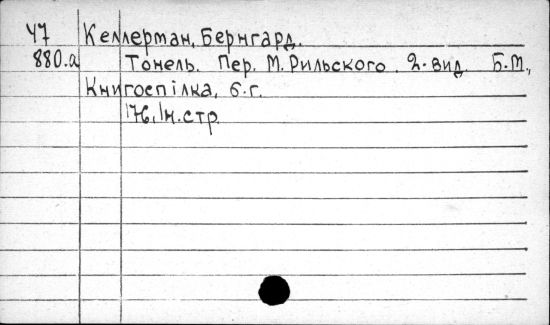 47 Келлерман, Бернгард.
880.а Тонель. Пер. М. Рильского. 2. вид. Б.М.,
Книгоспілка, б.г.
176, Iн. стр.